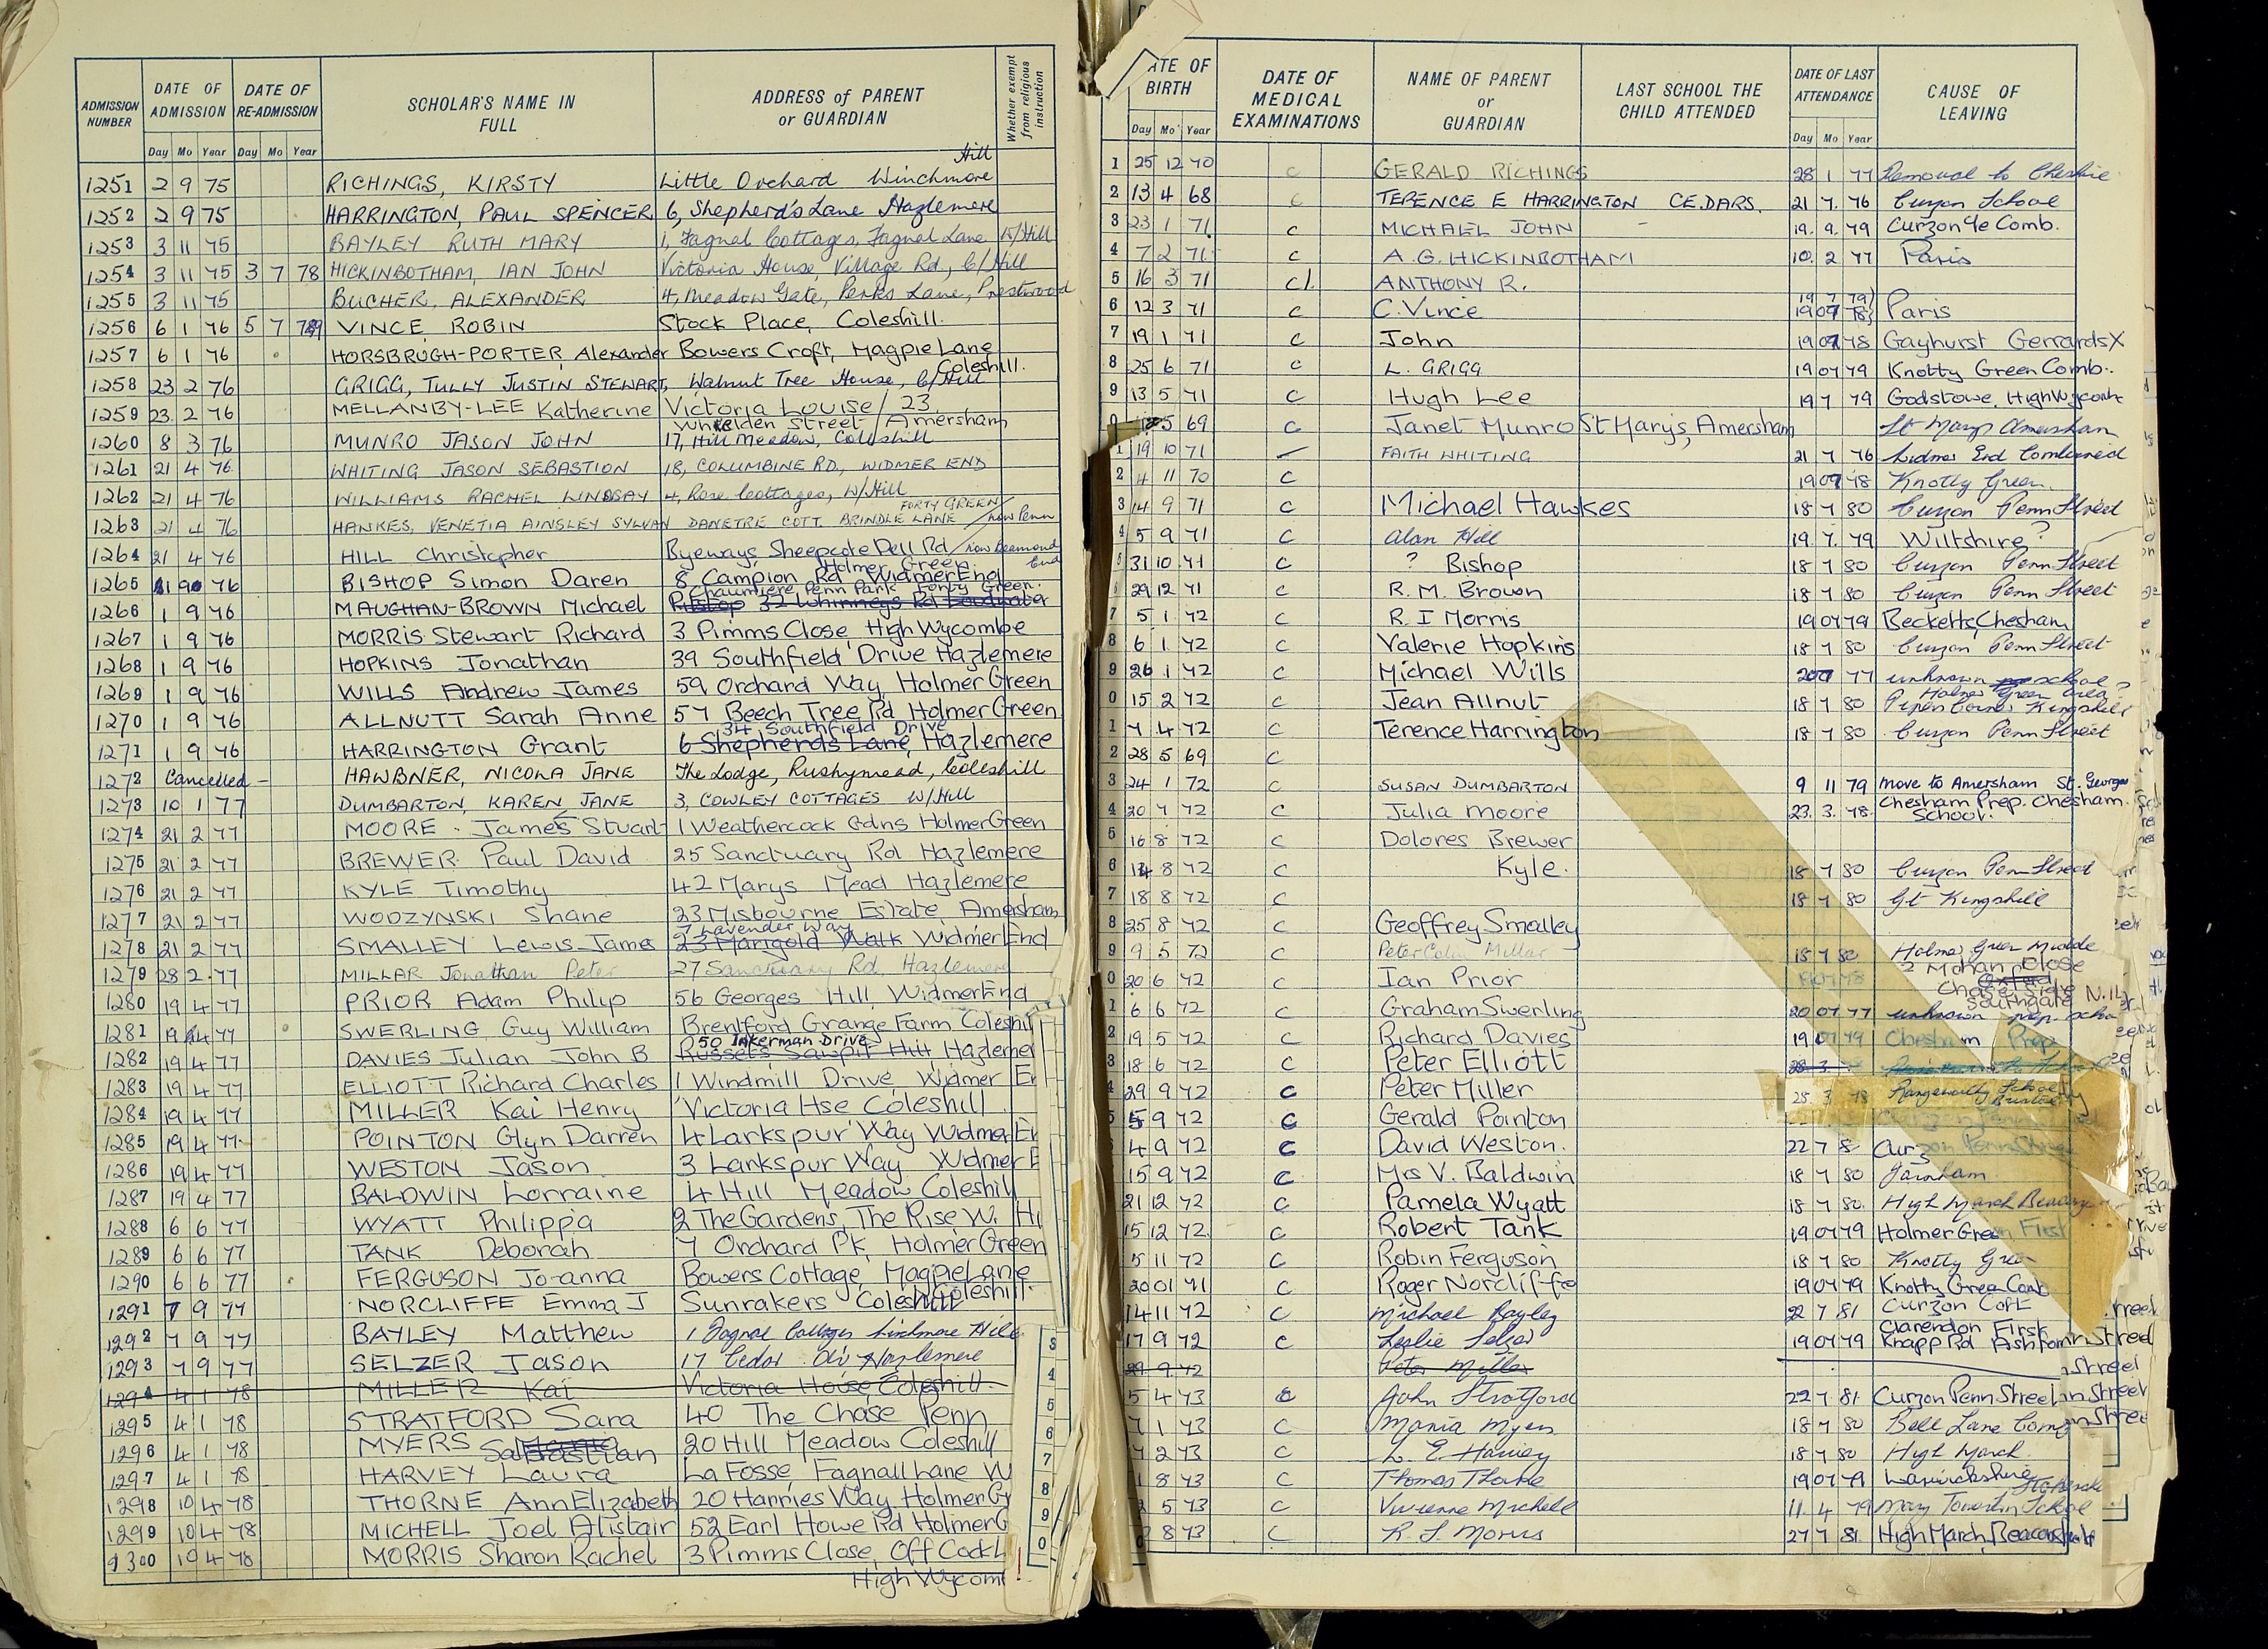 ADMISSION NUMBER | DATE OF ADMISSION | DATE OF RE-ADMISSION | SCHOLAR'S NAME IN FULL | ADDRESS of PARENT or GUARDIAN | Whether exempt from religious instruction
Day Mo Year Day Mo Year
Hill
1251 2 9 75 RICHINGS, KIRSTY Little Orchard Winchmore
1252 2 9 75 HARRINGTON, PAUL SPENCER 6, Shepherd's Lane Hazlemere
1253 3 11 75 BAYLEY RUTH MARY 1, Fagnal Cottages, Fagnal Lane W/Hill
1254 3 11 75 3 7 78 HICKINBOTHAM, IAN JOHN Victoria House, Village Rd, C/Hill
1255 3 11 75 BUCHER, ALEXANDER 4, Meadow Gate, Perks Lane, Prestwood
1256 6 1 76 5 7 VINCE ROBIN Stock Place, Coleshill.
1257 6 1 76 HORSBRUGH-PORTER, Alexander Bowers Croft, Magpie Lane
Coleshill.
1258 23 2 76 GRIGG, TULLY JUSTIN STEWART, Walnut Tree House, C/Hill
1259 23 2 76 MELLANBY-LEE Katherine Victoria Louise / 23
Whielden Street / Amersham
1260 8 3 76 MUNRO JASON JOHN 17, Hill Meadow, Coleshill
1261 21 4 76 WHITING JASON SEBASTION 18, COLUMBINE RD., WIDMER END
1262 21 4 76 WILLIAMS RACHEL LINDSAY 4, Rose Cottages, W/Hill
FORTY GREEN
1263 21 4 76 HANKES, VENETIA AINSLEY SYLVAN DANETRE COTT. BRINDLE LANE / now Penn
1264 21 4 76 HILL Christopher Byeways Sheepcote Dell Rd / now Beamond End
Holmer Green
1265 76 BISHOP Simon Daren 8 Campion Rd Widmer End
Chaumiere Penn Park Forty Green.
1266 1 9 76 MAUGHAN-BROWN Michael 32 Whinneys Rd Loudwater
1267 1 9 76 MORRIS Stewart Richard 3 Pimms Close High Wycombe
1268 1 9 76 HOPKINS Jonathan 39 Southfield Drive Hazlemere
1269 1 9 76 WILLS Andrew James 59 Orchard Way, Holmer Green
1270 1 9 76 ALLNUTT Sarah Anne 57 Beech Tree Rd Holmer Green
34 Southfield Drive
1271 1 9 76 HARRINGTON Grant 6 Shepherds Lane, Hazlemere
1272 Cancelled - HAWBNER, NICOLA JANE The Lodge, Rushymead, Coleshill
1273 10 1 77 DUMBARTON, KAREN JANE 3, COWLEY COTTAGES W/Hill
1274 21 2 77 MOORE James Stuart 1 Weathercock Gdns Holmer Green
1275 21 2 77 BREWER Paul David 25 Sanctuary Rd Hazlemere
1276 21 2 77 KYLE Timothy 42 Marys Mead Hazlemere
1277 21 2 77 WODZYNSKI Shane 23 Misbourne Estate, Amersham
7 Lavender Way
1278 21 2 77 SMALLEY Lewis James 23 Marigold Walk Widmer End
1279 28 2 77 MILLAR Jonathan Peter 27 Sanctuary Rd, Hazlemere
1280 19 4 77 PRIOR Adam Philip 56 Georges Hill, Widmer End
1281 19 4 77 SWERLING Guy William Brentford Grange Farm Coleshill
50 Inkerman Drive
1282 19 4 77 DAVIES Julian John B Russets Sawpit Hill Hazlemer
1283 19 4 77 ELLIOTT Richard Charles 1 Windmill Drive, Widmer En
1284 19 4 77 MILLER Kai Henry Victoria Hse Coleshill
1285 19 4 77 POINTON Glyn Darren 4 Larkspur Way Widmer En
1286 19 4 77 WESTON Jason 3 Larkspur Way Widmer E
1287 19 4 77 BALDWIN Lorraine 4 Hill Meadow Coleshill
1288 6 6 77 WYATT Philippa 2 The Gardens, The Rise, W. Hi
1289 6 6 77 TANK Deborah 7 Orchard Pk, Holmer Green
1290 6 6 77 FERGUSON Jo-anna Bowers Cottage, Magpie Lane
Coleshill.
1291 7 9 77 NORCLIFFE Emma J Sunrakers Coleshill
1292 7 9 77 BAYLEY Matthew 1 Fagnal Cottages Winchmore Hill
1293 7 9 77 SELZER Jason 17 Cedar Dr Hazlemere
1294 4 1 78 MILLER Kai Victoria House Coleshill
1295 4 1 78 STRATFORD Sara 40 The Chase Penn
1296 4 1 78 MYERS Sabastian 20 Hill Meadow Coleshill
1297 4 1 78 HARVEY Laura La Fosse Fagnall Lane W
1298 10 4 78 THORNE Ann Elizabeth 20 Harries Way Holmer Gr
1299 10 4 78 MICHELL Joel Alistair 52 Earl Howe Rd Holmer G
1300 10 4 78 MORRIS Sharon Rachel 3 Pimms Close, Off Cock L
High Wycom
3
4
5
6
7
8
9
0
ATE OF BIRTH | DATE OF MEDICAL EXAMINATIONS | NAME OF PARENT or GUARDIAN | LAST SCHOOL THE CHILD ATTENDED | DATE OF LAST ATTENDANCE | CAUSE OF LEAVING
Day Mo Year Day Mo Year
1 25 12 70 c GERALD RICHINGS 28 1 77 Removal to Cheshire
2 13 4 68 c TERENCE E HARRINGTON CEDARS. 21 7. 76 Curzon School
3 23 1 71 c MICHAEL JOHN - 19. 9. 79 Curzon Ye Comb.
4 7 2 71 c A.G. HICKINBOTHAM 10. 2 77 Paris
5 16 3 71 c ANTHONY R.
19 7 79
6 12 3 71 c C. Vince 19 07 78 Paris
7 19 1 71 c John 19 07 78 Gayhurst Gerrards X
8 25 6 71 c L. GRIGG 19 07 79 Knotty Green Comb.
9 13 5 71 c Hugh Lee 19 7 79 Godstowe, High Wycombe
0 5 69 c Janet Munro St Mary's, Amersham St Marys Amersham
1 19 10 71 FAITH WHITING 21 7 76 Widmer End Combined
2 4 11 70 c 19 07 78 Knotty Green.
3 14 9 71 c Michael Hawkes 18 7 80 Curzon Penn Street
4 5 9 71 c Alan Hill 19. 7. 79 Wiltshire?
5 31 10 71 c ? Bishop 18 7 80 Curzon Penn Street
29 12 71 c R. M. Brown 18 7 80 Curzon Penn Street
7 5 1 72 c R. I Morris 19 07 79 Becketts, Chesham
8 6 1 72 c Valerie Hopkins 18 7 80 Curzon Penn Street
9 26 1 72 c Michael Wills 77 unknown school ?
Holmer Green area
0 15 2 72 c Jean Allnut 18 7 80 Pipers Corner Kingshill
1 7 4 72 c Terence Harrington 18 7 80 Curzon Penn Street
2 28 5 69 c
3 24 1 72 c SUSAN DUMBARTON 9 11 79 move to Amersham St. Georges
4 20 7 72 c Julia Moore 23. 3. 78 Chesham Prep. Chesham.
School.
5 16 8 72 c Dolores Brewer
6 14 8 72 c Kyle. 18 7 80 Curzon Penn Street
7 18 8 72 c 18 7 80 Gt Kingshill
8 25 8 72 c Geoffrey Smalley
9 9 5 72 c Peter Colin Millar 18 7 80 Holmer Green Middle
2 Mohan Close
0 20 6 72 c Ian Prior 19 07 78 Oxford
Chase Side N.14
Southgate
1 6 6 72 c Graham Swerling 20 07 77 unknown prep. schoo
2 19 5 72 c Richard Davies 19 07 79 Chesham Prep
3 18 6 72 c Peter Elliott 28 3
29 9 72 c Peter Miller 28 3 78 School
5 9 72 c Gerald Pointon
4 9 72 c David Weston. 22 7 8 Curzon Penn Street
15 9 72 c Mrs V. Baldwin 18 7 80 Farnham
21 12 72 c Pamela Wyatt 18 7 80. High March Beacon
15 12 72 c Robert Tank 19 07 79 Holmer Green First
5 11 72 c Robin Ferguson 18 7 80 Knotty Green
20 01 71 c Roger Norcliffe 19 07 79 Knotty Green Comb
14 11 72 c Michael Bayley 22 7 81 Curzon CofE
Clarendon First
17 9 72 c Leslie Selzer 19 07 79 Knapp Rd Ashford
29 9 72 Peter Miller
5 4 73 c John Stratford 22 7 81. Curzon Penn Street
7 1 73 c Maria Myers 18 7 80 Bell Lane Comb
7 2 73 c L. E. Harvey 18 7 80 High March.
8 73 c Thomas Thorne 19 07 79 Warwickshire
5 73 c Vivienne Michell 11. 4 79 Mary Towerton School
8 73 c R. I. Morris 27 7 81 High March, Beaconsfield